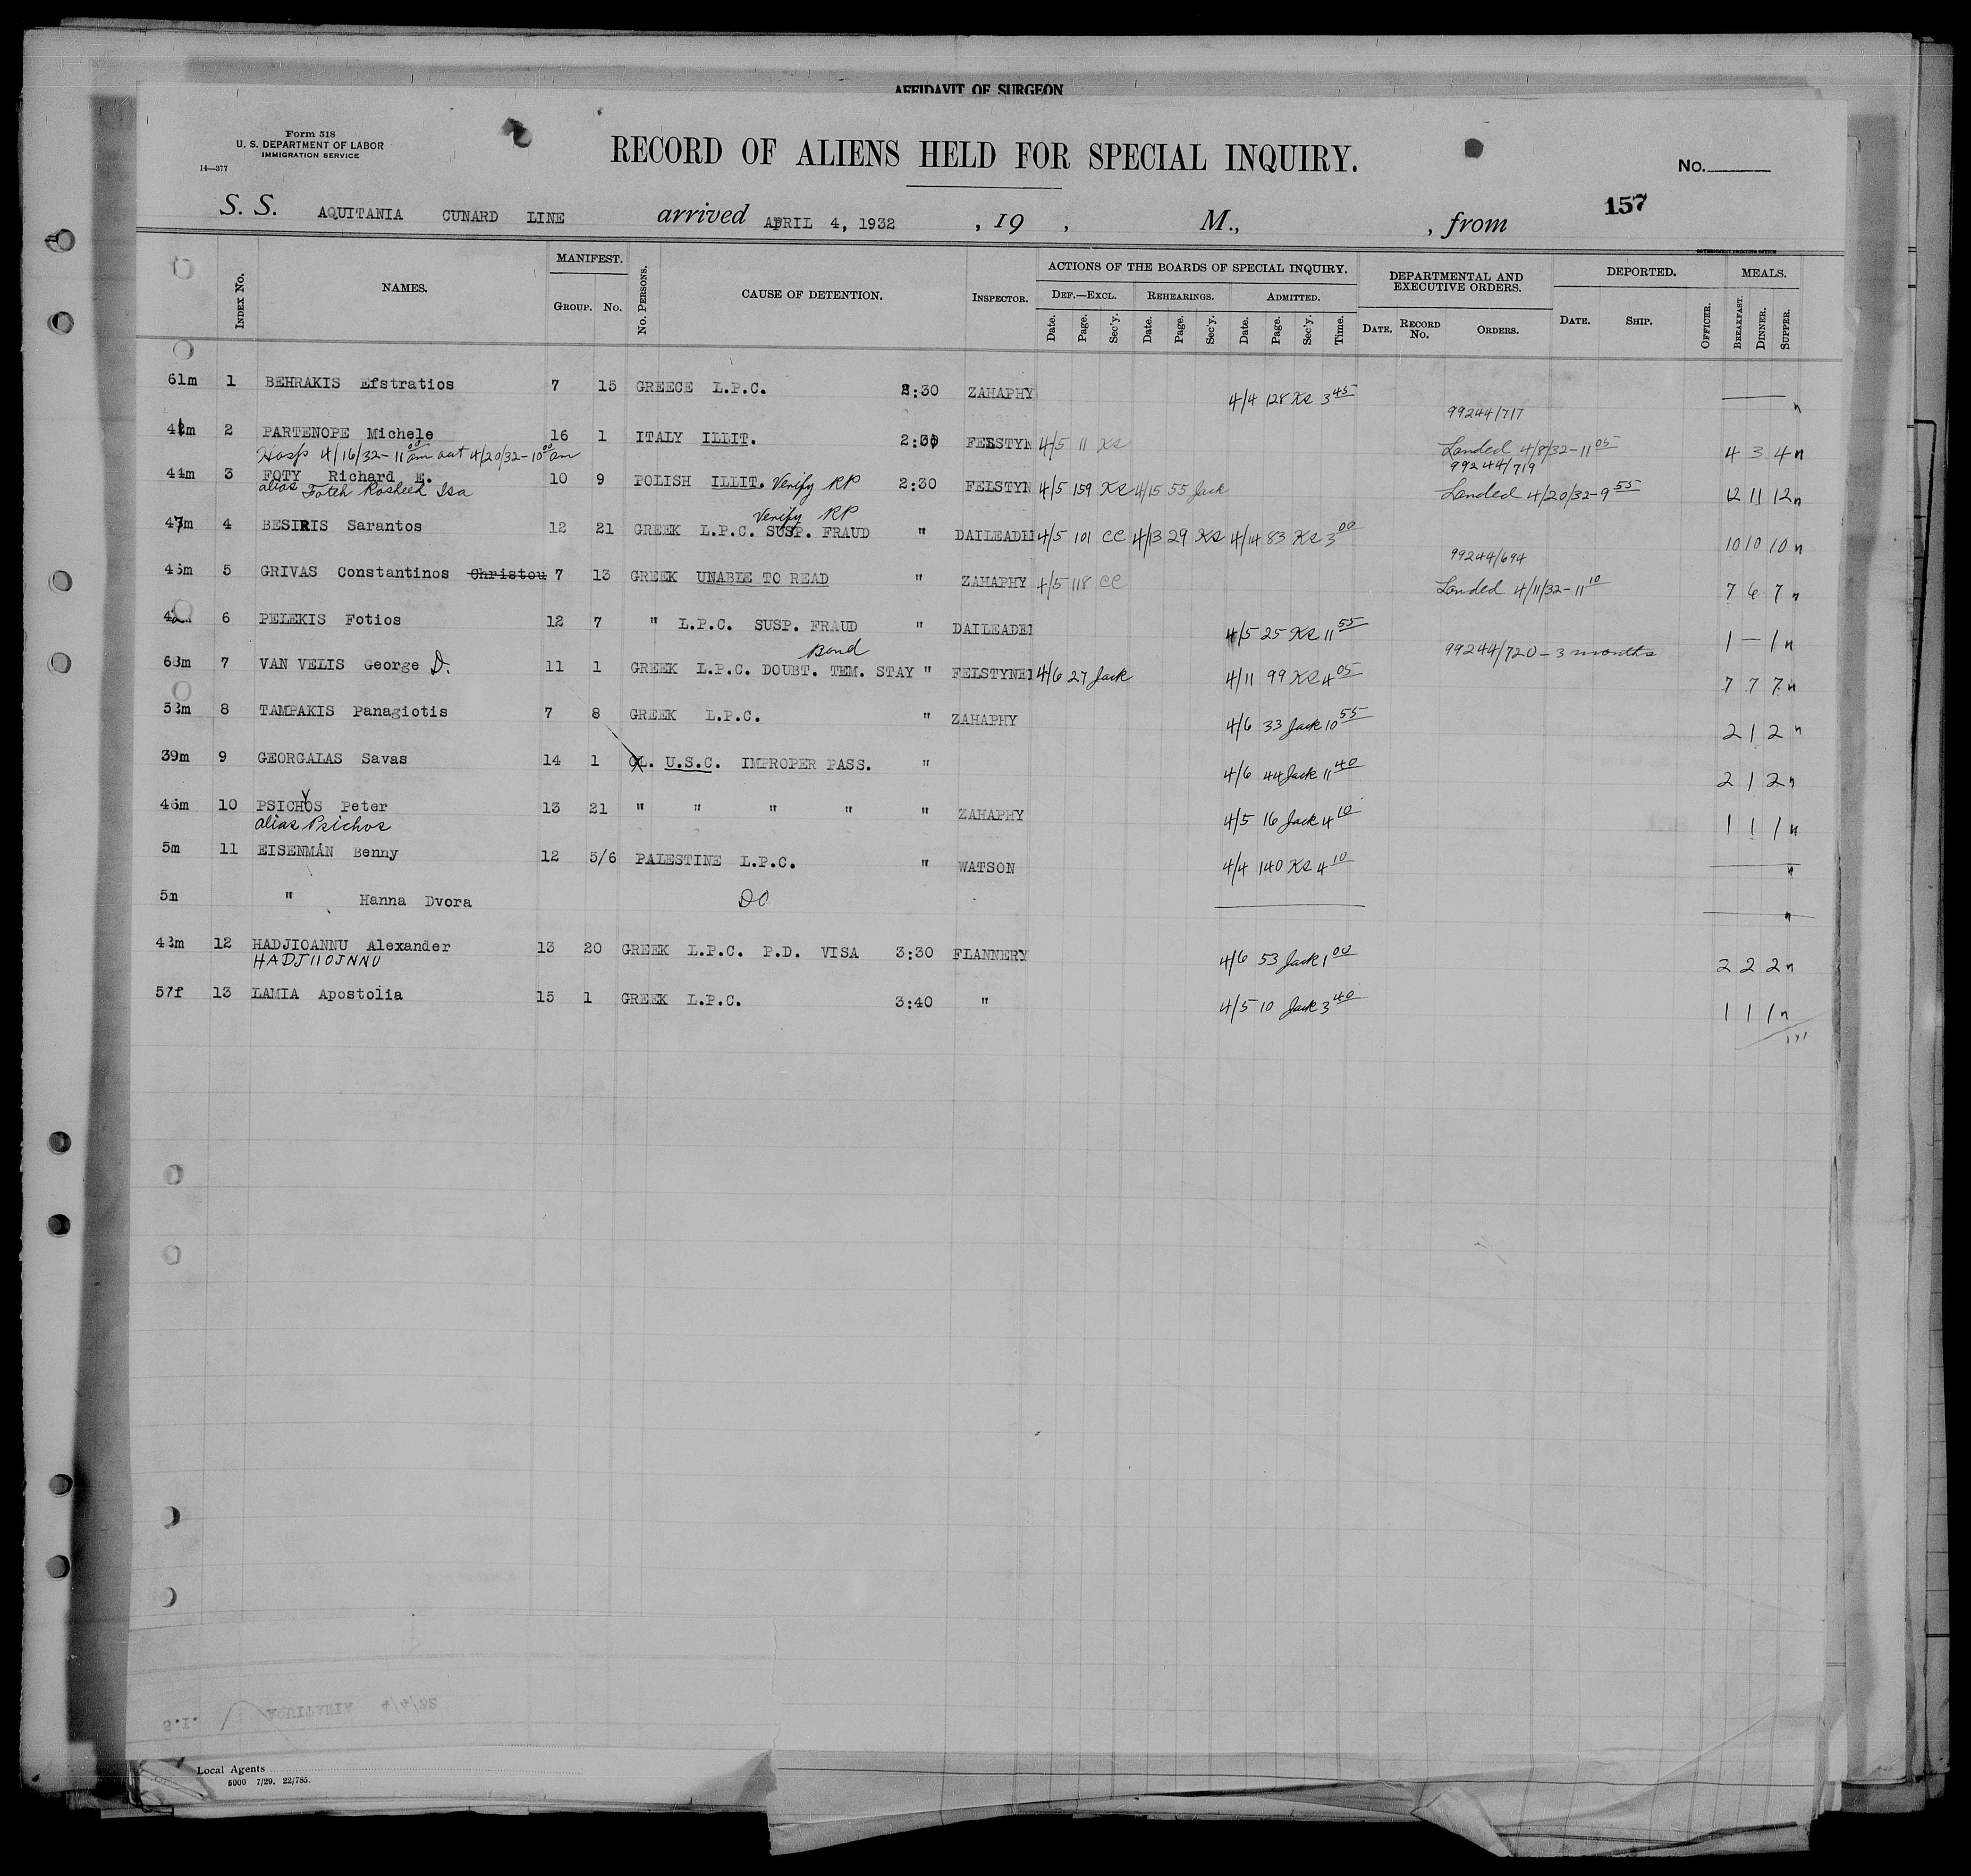 AFFIDAVIT OF SURGEON
Form 518
U. S. DEPARTMENT OF LABOR
IMMIGRATION SERVICE
14—377
RECORD OF ALIENS HELD FOR SPECIAL INQUIRY.
No.
S. S. AQUITANIA CUNARD LINE arrived APRIL 4, 1932 , 19 , M., , from
157
GOVERNMENT PRINTING OFFICE
Index No. NAMES. MANIFEST. Group. No. No. Persons. CAUSE OF DETENTION. Inspector. ACTIONS OF THE BOARDS OF SPECIAL INQUIRY. DEPARTMENTAL AND EXECUTIVE ORDERS. DEPORTED. MEALS.
Def.—Excl. Rehearings. Admitted.
Date. Page. Sec'y. Date. Page. Sec'y. Date. Page. Sec'y. Time. Date. Record No. Orders. Date. Ship. Officer. Breakfast. Dinner. Supper.
61m 1 BEHRAKIS Efstratios 7 15 GREECE L.P.C. 2:30 ZAHAPHY 4/4 128 KS 3 45
99244/717
2 PARTENOPE Michele 16 1 ITALY ILLIT. 2:30 FELSTYN 4/5 11 KS Landed 4/8/32-11 05 4 3 4 n
Hosp 4/16/32-11 00 am out 4/20/32-10 00 am
99244/719
44m 3 FOTY Richard E. 10 9 POLISH ILLIT. Verify RP 2:30 FELSTYN 4/5 159 KS 4/15 55 Jack Landed 4/20/32-9 55 12 11 12 n
alias Foteh Rosheed Isa
Verify RP
47m 4 BESIRIS Sarantos 12 21 GREEK L.P.C. SUSP. FRAUD " DAILEADE 4/5 101 CC 4/13 29 KS 4/14 83 KS 3 00 10 10 10 n
99244/694
45m 5 GRIVAS Constantinos Christou 7 13 GREEK UNABLE TO READ " ZAHAPHY 4/5 118 CC Landed 4/11/32-11 10 7 6 7 n
6 PELEKIS Fotios 12 7 " L.P.C. SUSP. FRAUD " DAILEADE 4/5 25 KS 11 55 1 — 1 n
Bond
99244/720 - 3 months
63m 7 VAN VELIS George D. 11 1 GREEK L.P.C. DOUBT. TEM. STAY " FELSTYNE 4/6 27 Jack 4/11 99 KS 4 05 7 7 7 n
8 TAMPAKIS Panagiotis 7 8 GREEK L.P.C. " ZAHAPHY 4/6 33 Jack 10 55 2 1 2 n
39m 9 GEORGALAS Savas 14 1 CL. U.S.C. IMPROPER PASS. " 4/6 44 Jack 11 40 2 1 2 n
46m 10 PSICHOS Peter 13 21 " " " " " ZAHAPHY 4/5 16 Jack 4 10 1 1 1 n
alias Psichos
5m 11 EISENMAN Benny 12 5/6 PALESTINE L.P.C. " WATSON 4/4 140 KS 4 10 n
5m " Hanna Dvora DO n
43m 12 HADJIOANNU Alexander 13 20 GREEK L.P.C. P.D. VISA 3:30 FLANNERY 4/6 53 Jack 1 00 2 2 2 n
HADJIIOJNNU
57f 13 LAMIA Apostolia 15 1 GREEK L.P.C. 3:40 " 4/5 10 Jack 3 40 1 1 1 n
S.I. AQUITANIA 4/4/32
Local Agents
5000 7/29. 22/785.